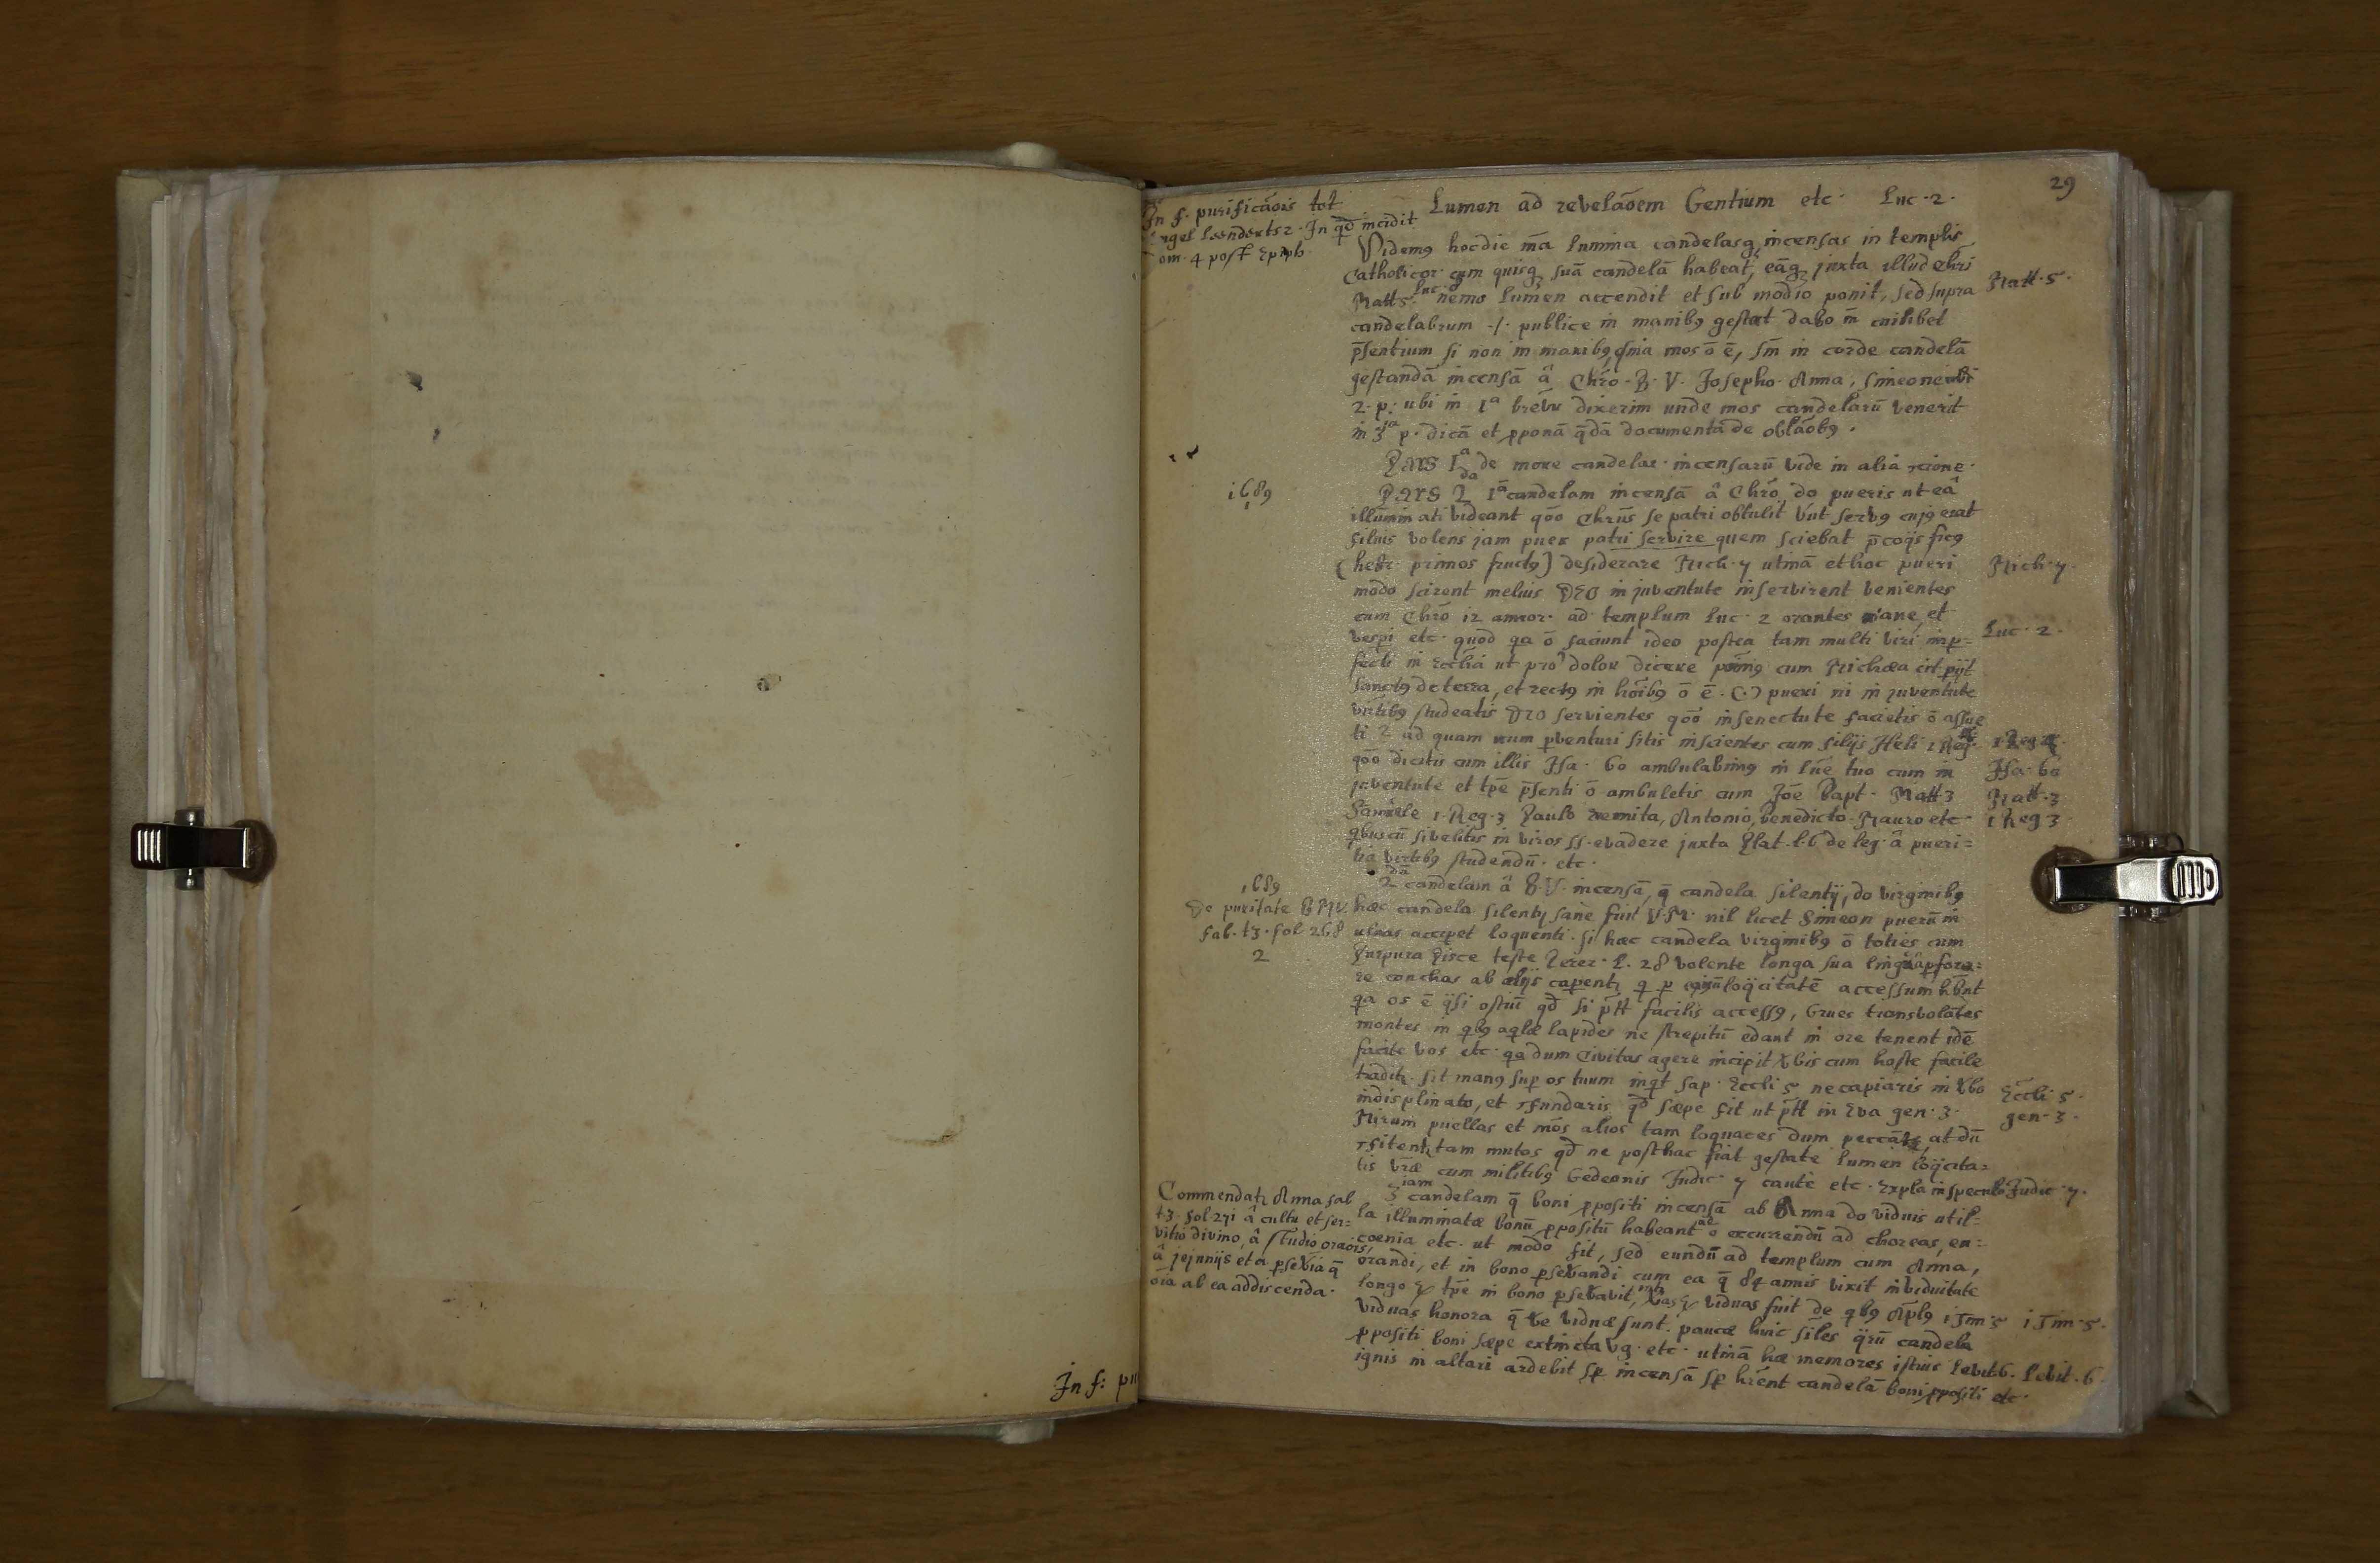 In f: pu
29
In f. purificãois tot
Engel leendertsz. In qd incidit
Dom. 4 post Epiph.
Lumen ad revelãoem Gentium etc. Luc. 2.
Videmg hodie mãa lumina candelasq incensas in templis
Catholicor. cum quisq suã candelã habeat, eãq juxta illud Chri
Matt 5. Luc. 8 nemo lumen accendit et sub modio ponit, sed supra
Matt. 5.
candelabrum ./. publice in manibg gestat dabo m cuilibet
p̄sentium si non in manibg quia mos õ ē, sm̄ in corde candelã
gestandã incensã â Chrō. B. V. Josepho. Anna, Simeone
2. p: ubi in 1a brevir dixerim unde mos candelarū venerit
in 3ia p. dicã et pponã q̄dã documenta de oblãobg.
Pars 1a de more candelar. incensarū vide in alia rcione.
1689
1
Pars 2da 1ã candelam incensã â Chrō do pueris ut eâ
illuminati videant qōo Chrūs se patri obtulit ut servg cujg erat
filius volens jam puer patri servire quem sciebat p̄coqs ficg
(hebr. primos fructg) desiderare Mich. 7 utinã et hoc pueri
Mich. 7.
modo scirent melius DEO in juventute inservirent venientes
cum Chrō 12 annor. ad templum Luc. 2 orantes mane, et
Luc. 2.
vespi etc. quod qa õ faciunt ideo postea tam multi viri imp=
fecti in Ecclia ut pro dolor dicere possimg cum Michæa
sanctg de terra, et rectg in hōibg õ ē. pueri ni in juventute
virtibg studeatis DEO servientes qōo in senectute facietis õ assue
ti? ad quam num pventuri sitis inscientes cum filijs Heli 1 Reg.
1 Reg
qōo dicitis cum illis Isa. 60 ambulabimg in lūe tuo cum in
Isa. 60
juventute et tp̄e p̄senti õ ambuletis cum Joē Bapt. Matt 3
Matt. 3
Samuele 1. Reg. 3 Paulo eremita, Antonio, benedicto. Mauro etc.
1 Reg 3.
qbuscū si velitis in viros ss. evadere juxta Plat. l. 6 de leg. â pueri=
tia virtibg studendū. etc.
1689
De puritate BMV.
fab. t3. fol 268
2
2dã candelam â B.V. incensã, q̄ candela silentij, do virginibg
hæc candela silentij sane fuit V.M. nil licet Simeon puerū in
ulnas accipet loquenti. si hæc candela virginibg õ toties cum
Purpura pisce teste Pierer. l. 28 volente longa sua lingua pfora=
re conchas ab alijs capent q p loqcitatē accessum hb̄nt
qa os ē qsi ostiū qd si ptt facilis accessg, Grues transvolãtes
montes in qbg aqlæ lapides ne strepitū edant in ore tenent idē
facite vos etc. qa dum Civitas agere incipit vbis cum hoste facile
tradit. sit mang sup os tuum inqt sap. Eccli 5 ne capiaris in vbo
Eccli 5.
indisplinato, et fundaris qd sæpe fit ut ptt in Eva gen. 3.
gen. 3.
Mirum puellas et mōs alios tam loquaces dum peccãt, at dū
sitent tam mutos qd ne posthac fiat gestate lumen loqcita=
tis vræ cum militibg Gedeonis Judic 7 caute etc. Expla in speculo
Judic. 7.
Commendat Anna fab
t3. fol 271 â cultu et ser=
vitio divino, â studio orãois,
â jejunijs et a psevia q̄
oīa ab ea addiscenda.
3iam candelam q̄ boni ppositi incensã ab Anna do viduis ut il=
la illuminatæ bonū ppositū habeant õ excurrendū ad choreas, en=
coenia etc. ut modo fit, sed eundū ad templum cum Anna,
orandi, et in bono psevandi cum ea q̄ 84 annis vixit in viduitate
longo tp̄e in bono psevavit, viduas fuit de qbg Aplg 1 Tim 5
1 Tim. 5.
viduas honora q̄ ve viduæ sunt. paucæ huic siles qrū candela
ppositi boni sæpe extincta etc. utinã hæ memores istius Levit 6.
Levit. 6.
ignis in altari ardebit sp incensã sp hrent candelã boni ppositi etc.